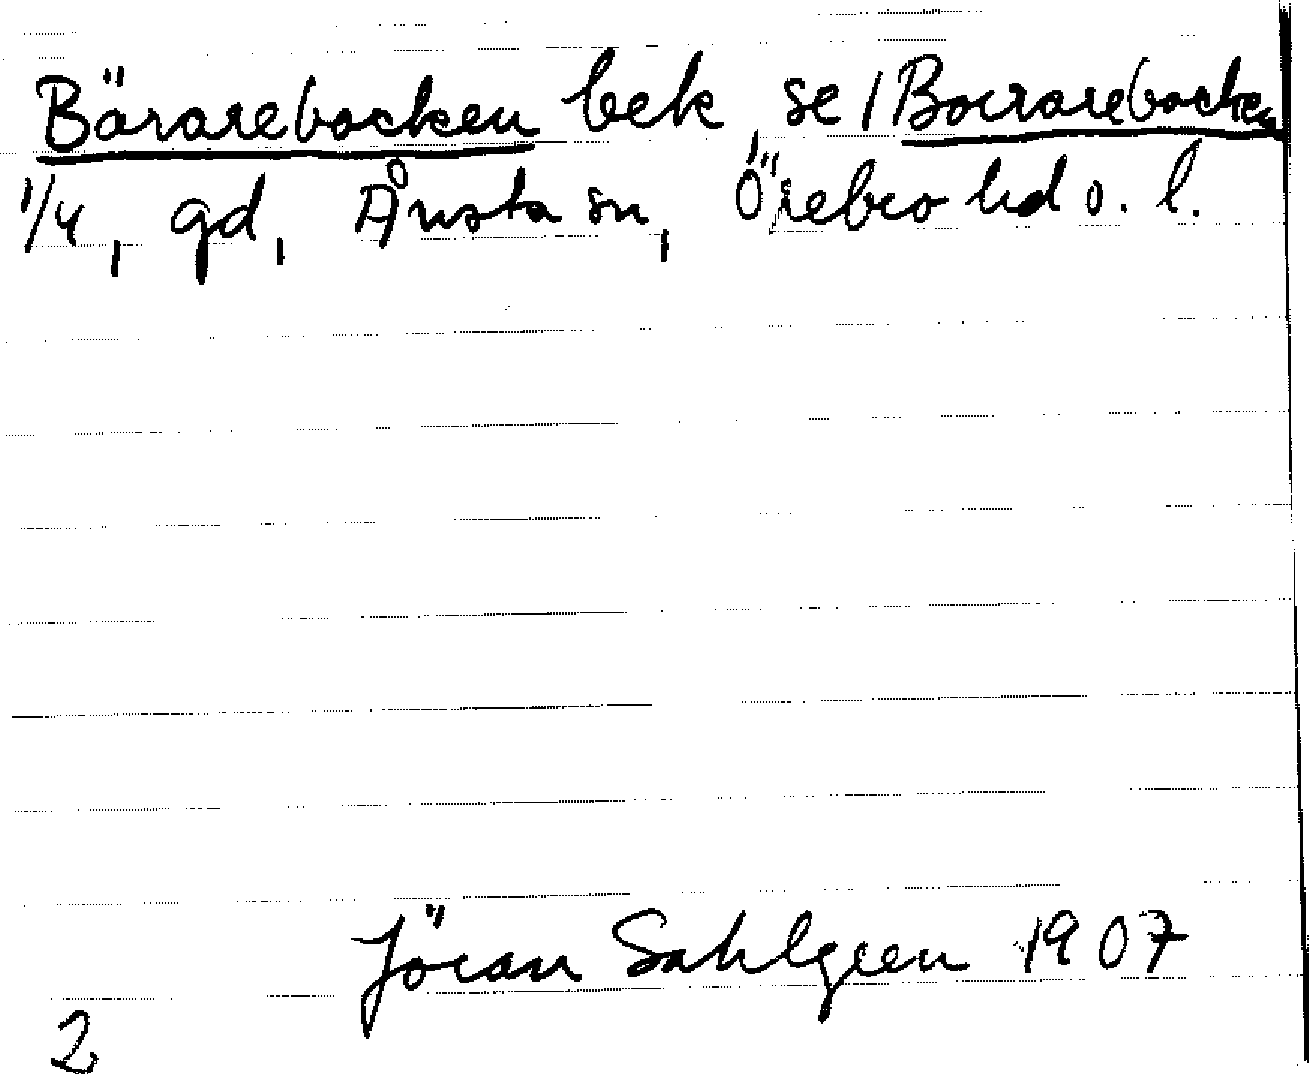 Bärarebacken bek, se / Boerarebacken
1/4, gd, Ånsta sn, Örebro hd o. l.
Jöran Sahlgren 1907
2